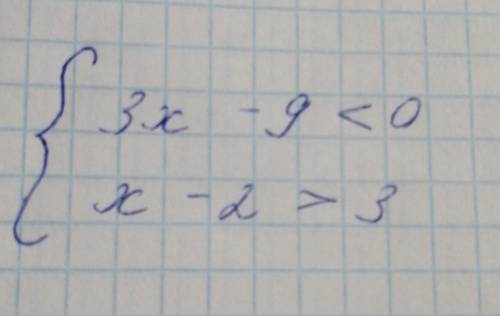 3x - 9 < 0
x - 2 > 3